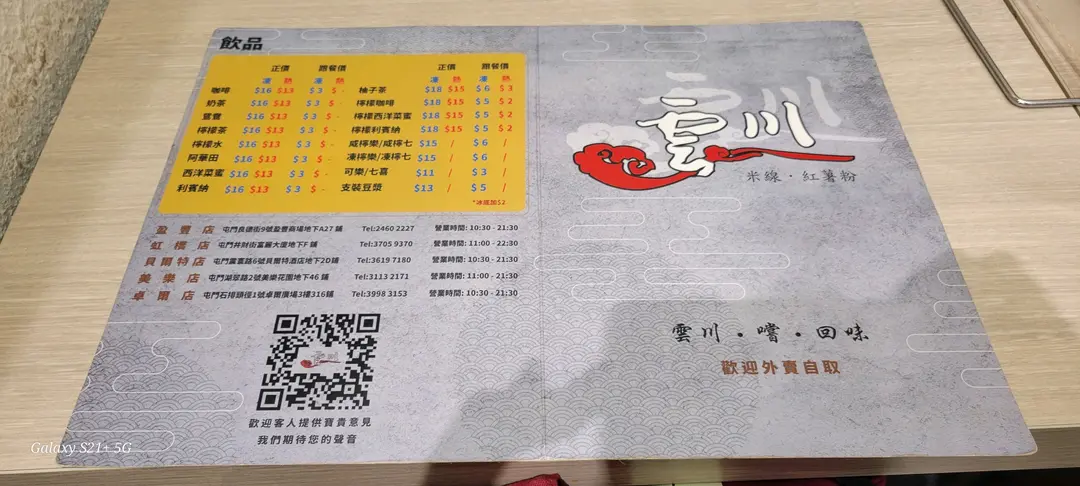 飲品
正價 跟餐價 正價 跟餐價
凍 熱 凍 熱 凍 熱 凍 熱
咖啡 $16 $13 $3 $- 柚子茶 $18 $15 $6 $3
奶茶 $16 $13 $3 $- 檸檬咖啡 $18 $15 $5 $2
鴛鴦 $16 $13 $3 $- 檸檬西洋菜蜜 $18 $15 $5 $2
檸檬茶 $16 $13 $3 $- 檸檬利賓納 $18 $15 $5 $2
檸檬水 $16 $13 $3 $- 咸檸樂/咸檸七 $15 / $6 /
阿華田 $16 $13 $3 $- 凍檸樂/凍檸七 $15 / $6 /
西洋菜蜜 $16 $13 $3 $- 可樂/七喜 $11 / $3 /
利賓納 $16 $13 $3 $- 支裝豆漿 $13 / $5 /
*冰底加$2
盈豐店 屯門良德街9號盈豐商場地下A27鋪 Tel:2460 2227 營業時間: 10:30 - 21:30
虹橋店 屯門井財街富麗大廈地下F鋪 Tel:3705 9370 營業時間: 11:00 - 22:30
貝爾特店 屯門震寰路6號貝爾特酒店地下2D鋪 Tel:3619 7180 營業時間: 10:30 - 21:30
美樂店 屯門湖翠路2號美樂花園地下46鋪 Tel:3113 2171 營業時間: 11:00 - 21:30
卓爾店 屯門石排頭徑1號卓爾廣場3樓316鋪 Tel:3998 3153 營業時間: 10:30 - 21:30
雲川
歡迎客人提供寶貴意見
我們期待您的聲音
雲川
米線·紅薯粉
雲川·嚐·回味
歡迎外賣自取
Galaxy S21+ 5G